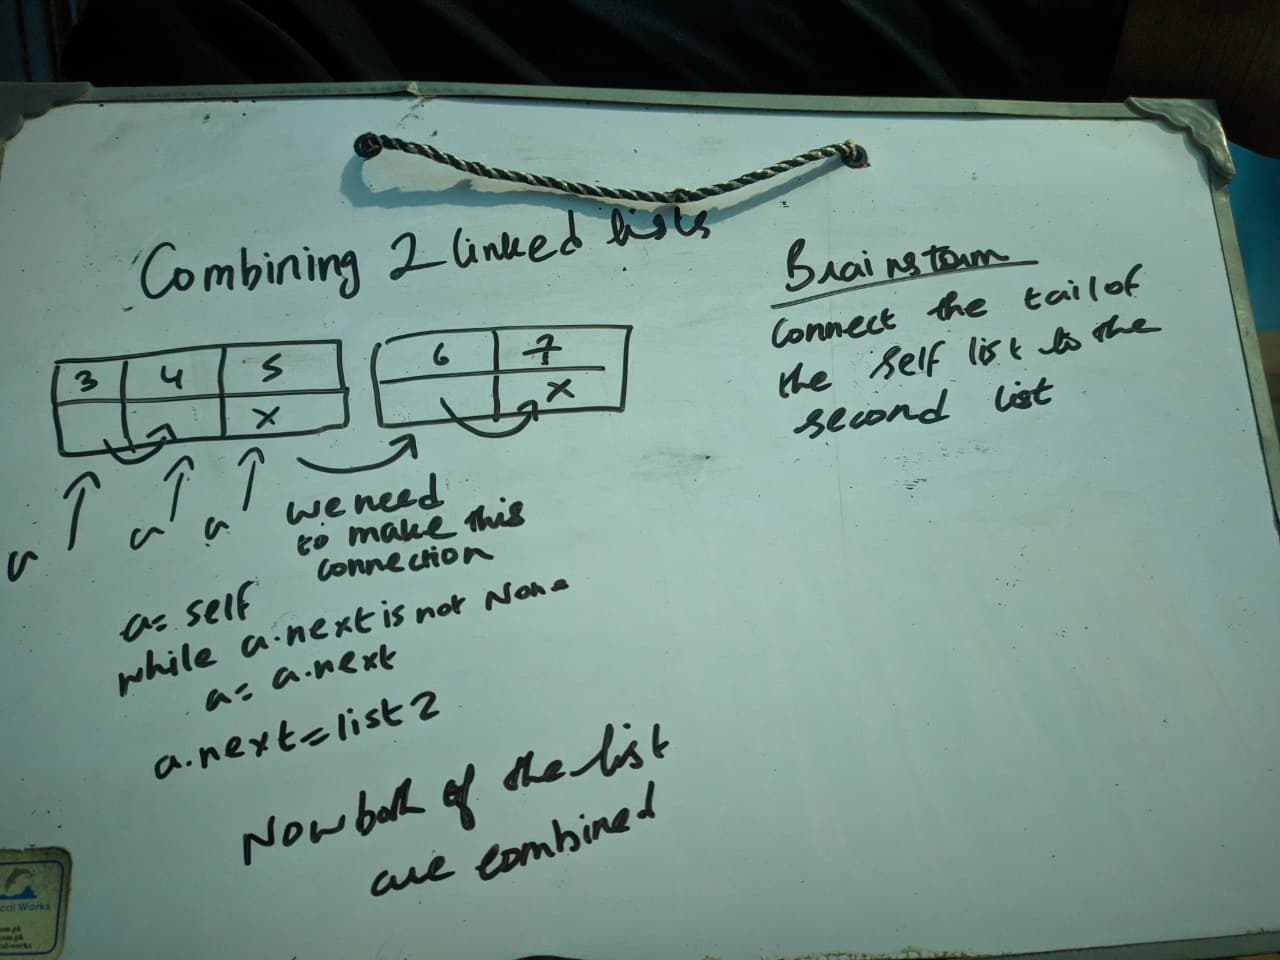 Combining 2 linked lists
3 4 5
x
6 7
x
a a a
we need
to make this
connection
a= self
while a.next is not None
a= a.next
a.next=list2
Now both of the list
are combined
Brainstorm
connect the tail of
the self list to the
second list
cal Works